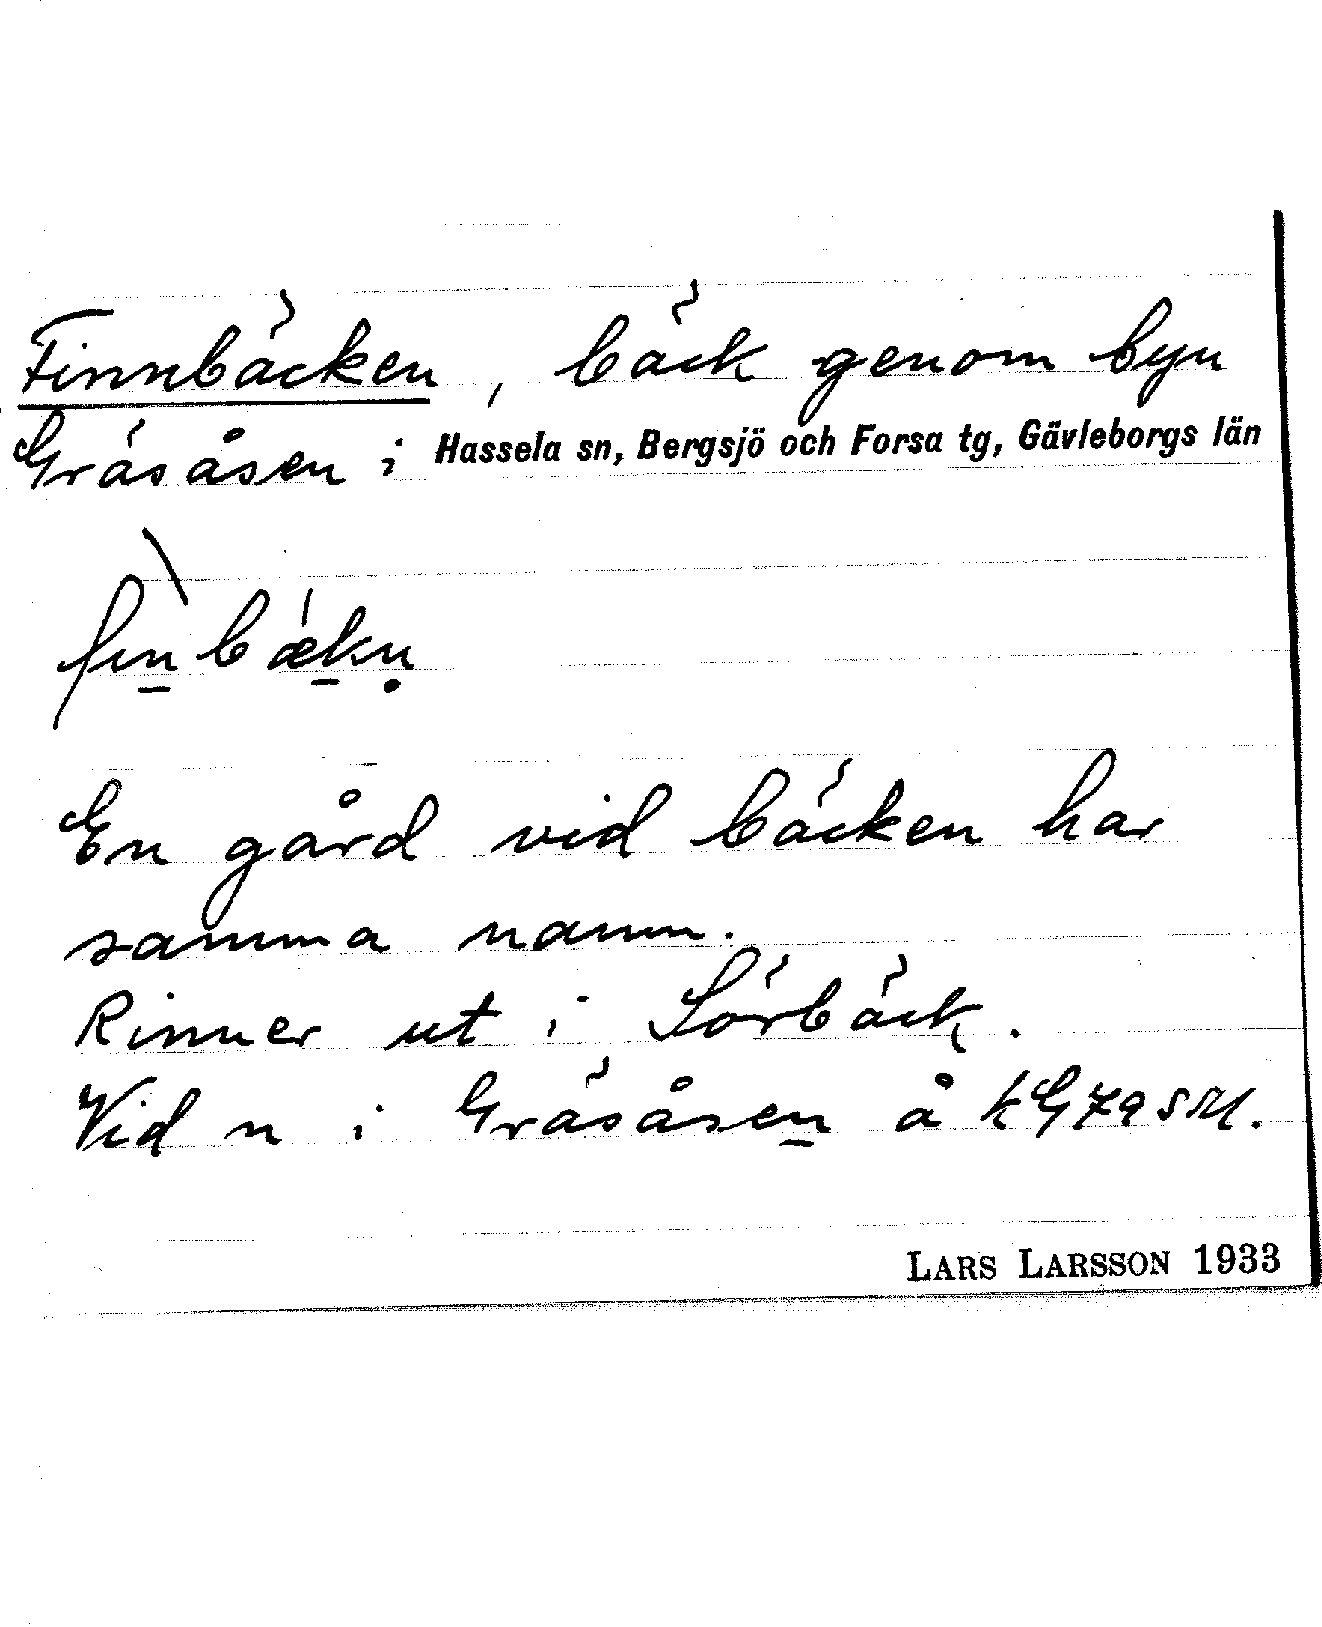 Finnbäcken, bäck genom byn
Gräsåsen i Hassela sn, Bergsjö och Forsa tg, Gävleborgs län
fìn̲bæ̲kṇ
En gård vid bäcken har
samma namn.
Rinner ut i Sörbäck.
Vid n i Gräsåsen̲ å kG
LARS LARSSON 1933